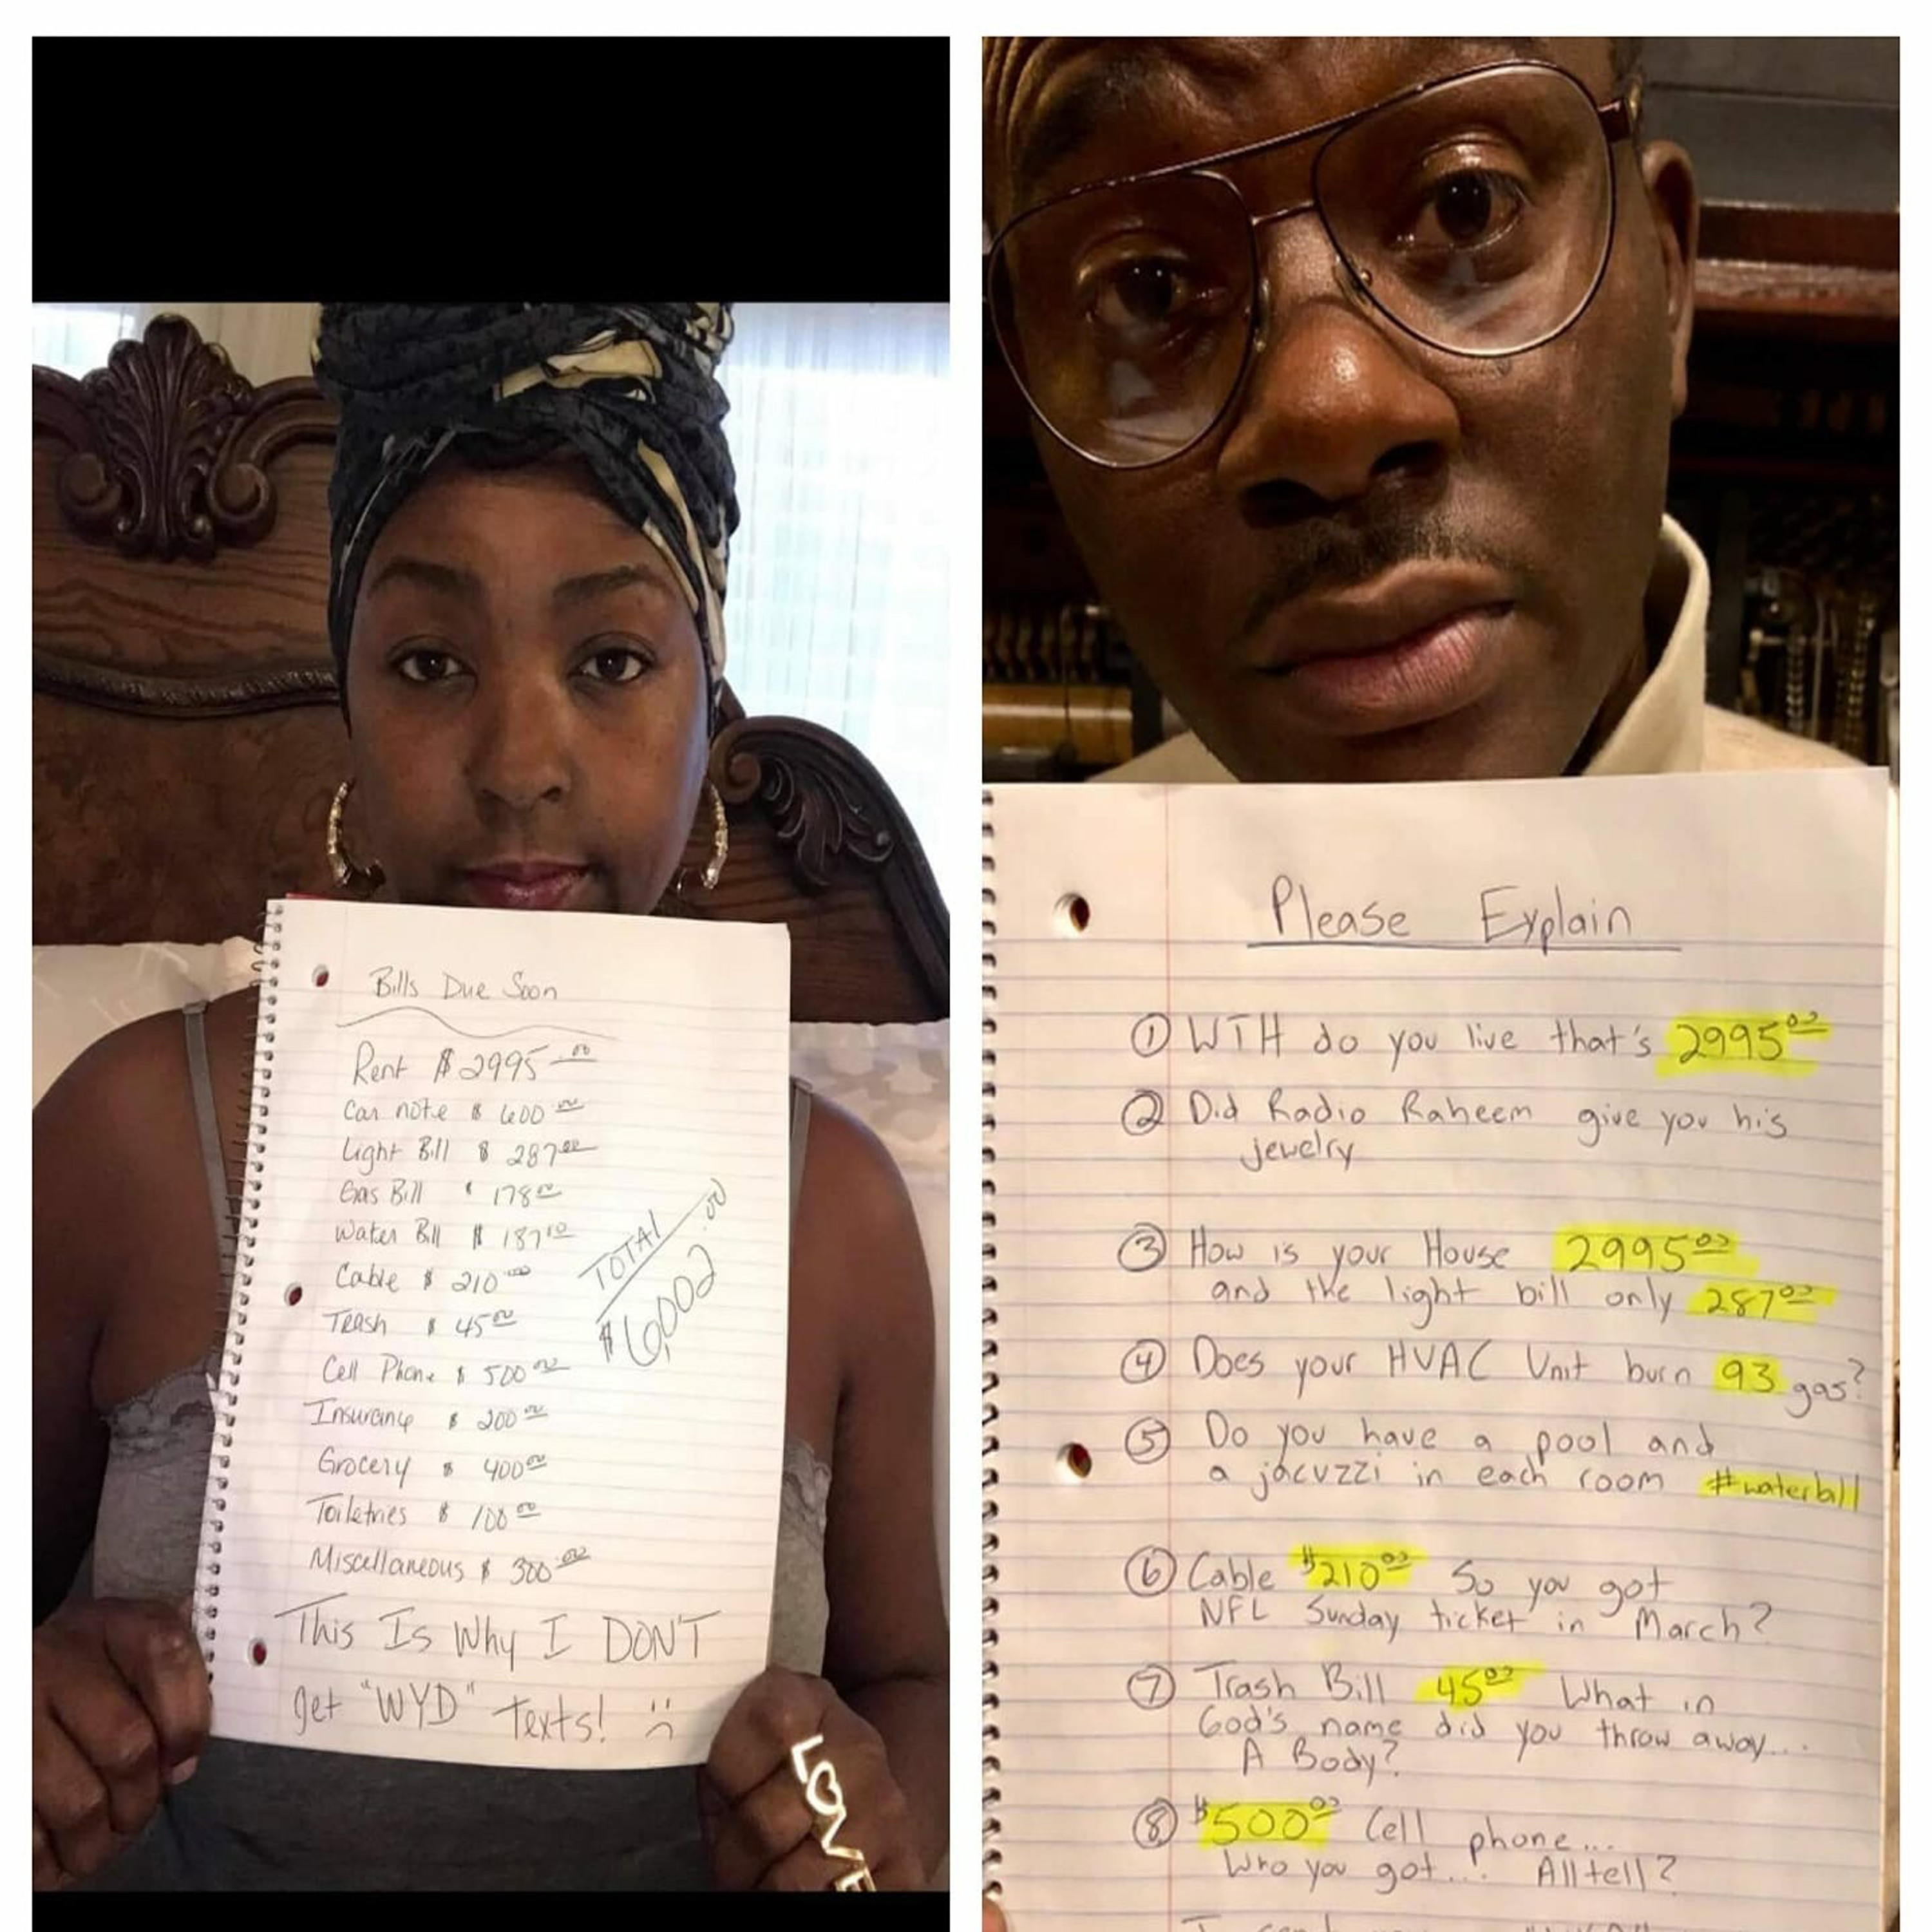 Bills Due Soon
Rent $2995.00
Car note $ 600.00
Light Bill $ 287.00
Gas Bill $ 178.00
Water Bill $ 187.00
Cable $ 210.00
Trash $ 45.00
Cell Phone $ 500.00
Insurance $ 200.00
Grocery $ 400.00
Toiletries $ 100.00
Miscellaneous $ 300.00
TOTAL
$6,002.00
This Is Why I DON'T
get "WYD" Texts! :(
LOVE
Please Explain
① WTH do you live that's 2995.00
② Did Radio Raheem give you his
jewelry
③ How is your House 2995.00
and the light bill only 287.00
④ Does your HVAC Unit burn 93 gas?
⑤ Do you have a pool and
a jacuzzi in each room #waterbill
⑥ Cable $210.00 So you got
NFL Sunday ticket in March?
⑦ Trash Bill 45.00 What in
God's name did you throw away...
A Body?
⑧ $500.00 Cell phone...
Who you got... Alltell?